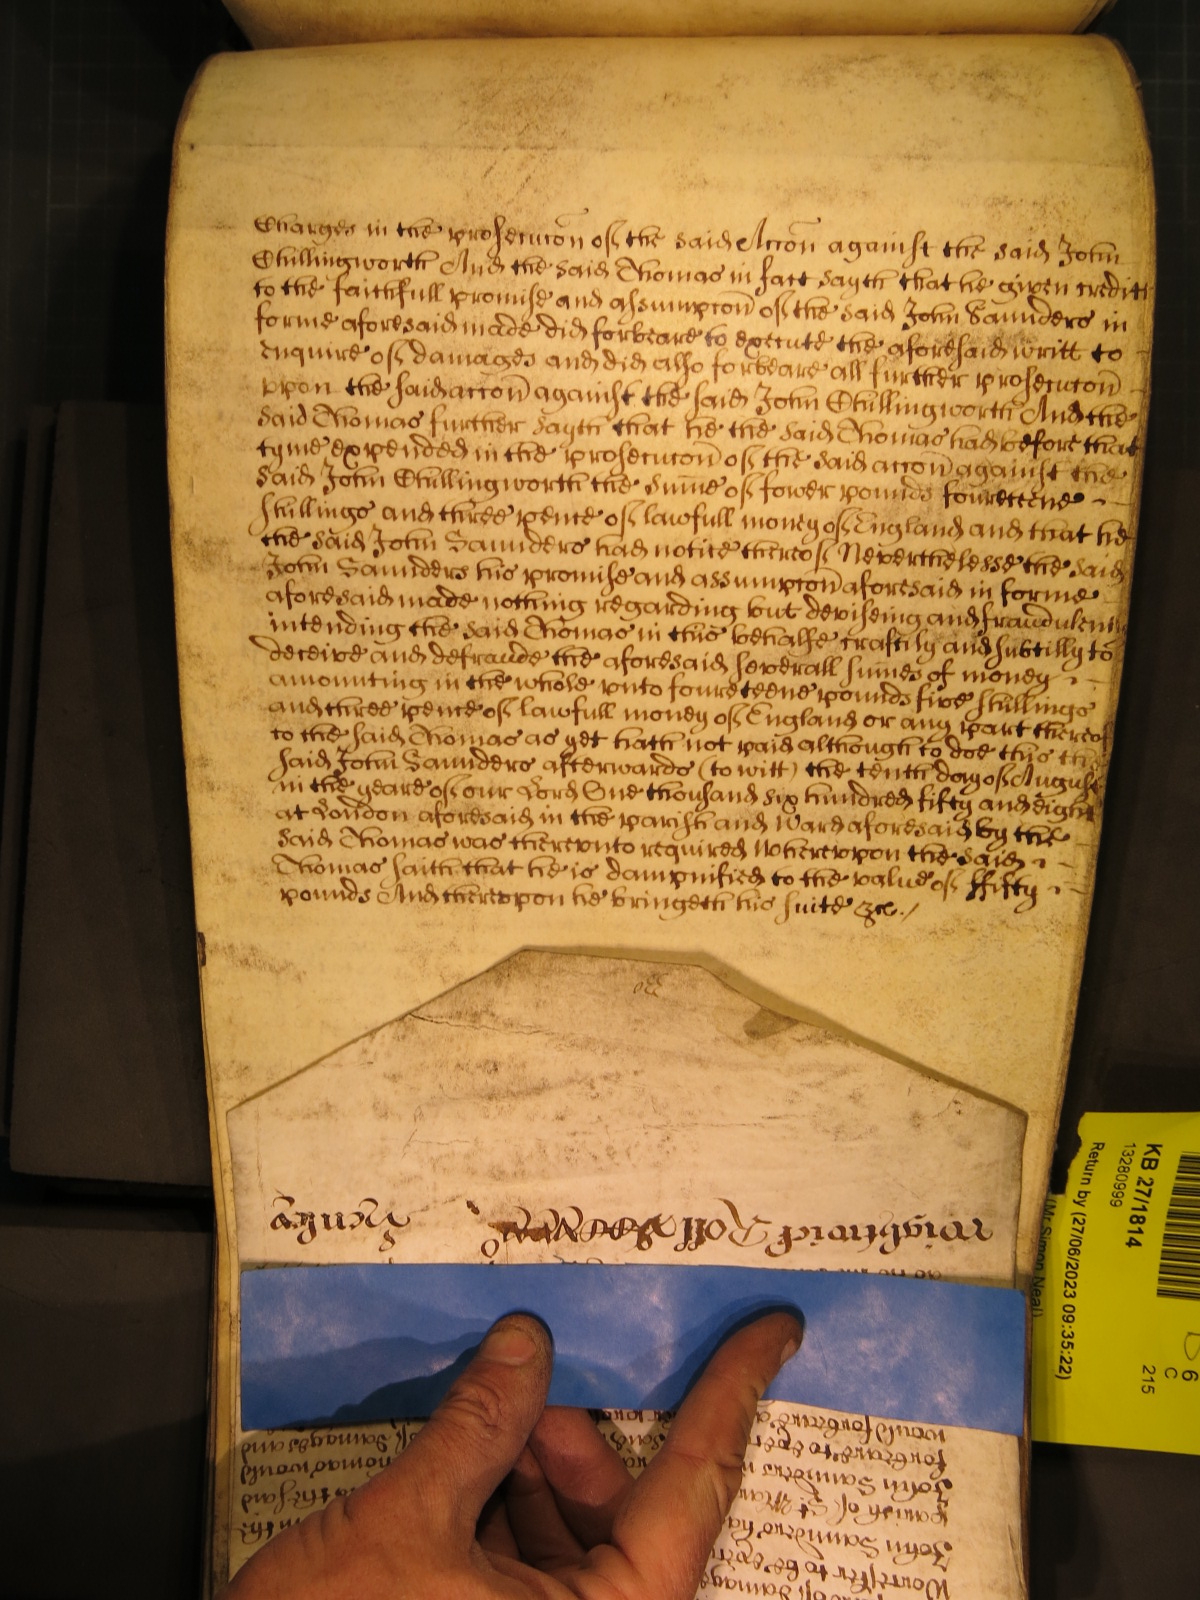 Charges in the prosecucōn of the said Accōn against the said John
Chillingworth And the said Thomas in fact sayth that he given credit
to the faithfull promise and assumpcōn of the said John Saunders in
forme aforesaid made did forbeare to execute the aforesaid writt to
enquire of damages and did also forbeare all further prosecucōn
vpon the said accōn against the said John Chillingworth And the
said Thomas further sayth that he the said Thomas had before that
tyme expended in the prosecucōn of the said accōn against the
said John Chillingworth the sum̄e of fower pounds foureteene
shillings and three pence of lawfull money of England and that he
the said John Saunders had notice thereof Neverthelesse the said
John Saunders his promise and assumpcōn aforesaid in forme
aforesaid made nothing regarding but deviseing and fraudulently
intending the said Thomas in this behalfe craftily and subtilly to
deceive and defraude the aforesaid severall sum̄es of money
amounting in the whole vnto foureteene pounds five shillings
and three pence of lawfull money of England or any part thereof
to the said Thomas as yet hath not paid although to doe this the
said John Saunders afterwards (to witt) the tenth day of August
in the yeare of our Lord One thousand six hundred fifty and eight
at London aforesaid in the parish and Ward aforesaid by the
said Thomas was therevnto required Wherevpon the said
Thomas saith that he is dampnified to the value of ffifty
pounds And therevpon he bringeth his suite &c./
Wightwick Roll
would forbeare
forbeare to
John Saunders
parish of St Mary
John Saunders
of Damages and
Thomas would
to the said
in the
KB 27/1814
13280999
Return by (27/06/2023 09:35:22)
(Mr Simon Neal)
6
C
215